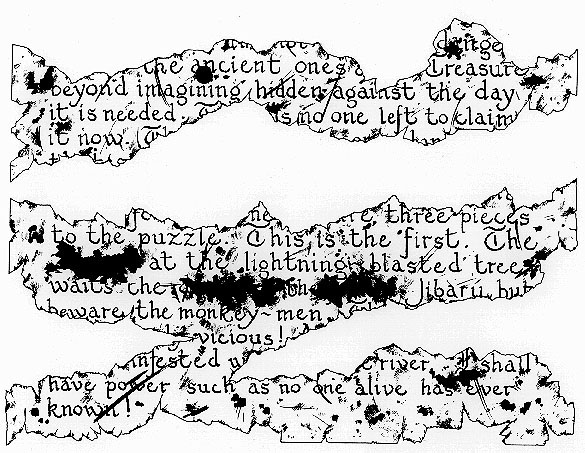 the ancient ones Treasure
beyond imagining hidden against the day
it is needed is no one left to claim
it now
three pieces
to the puzzle. This is the first. The
at the lightning blasted tree
waits the Jibaru but
beware the monkey-men
vicious!
infested river. I shall
have power such as no one alive has ever
known!